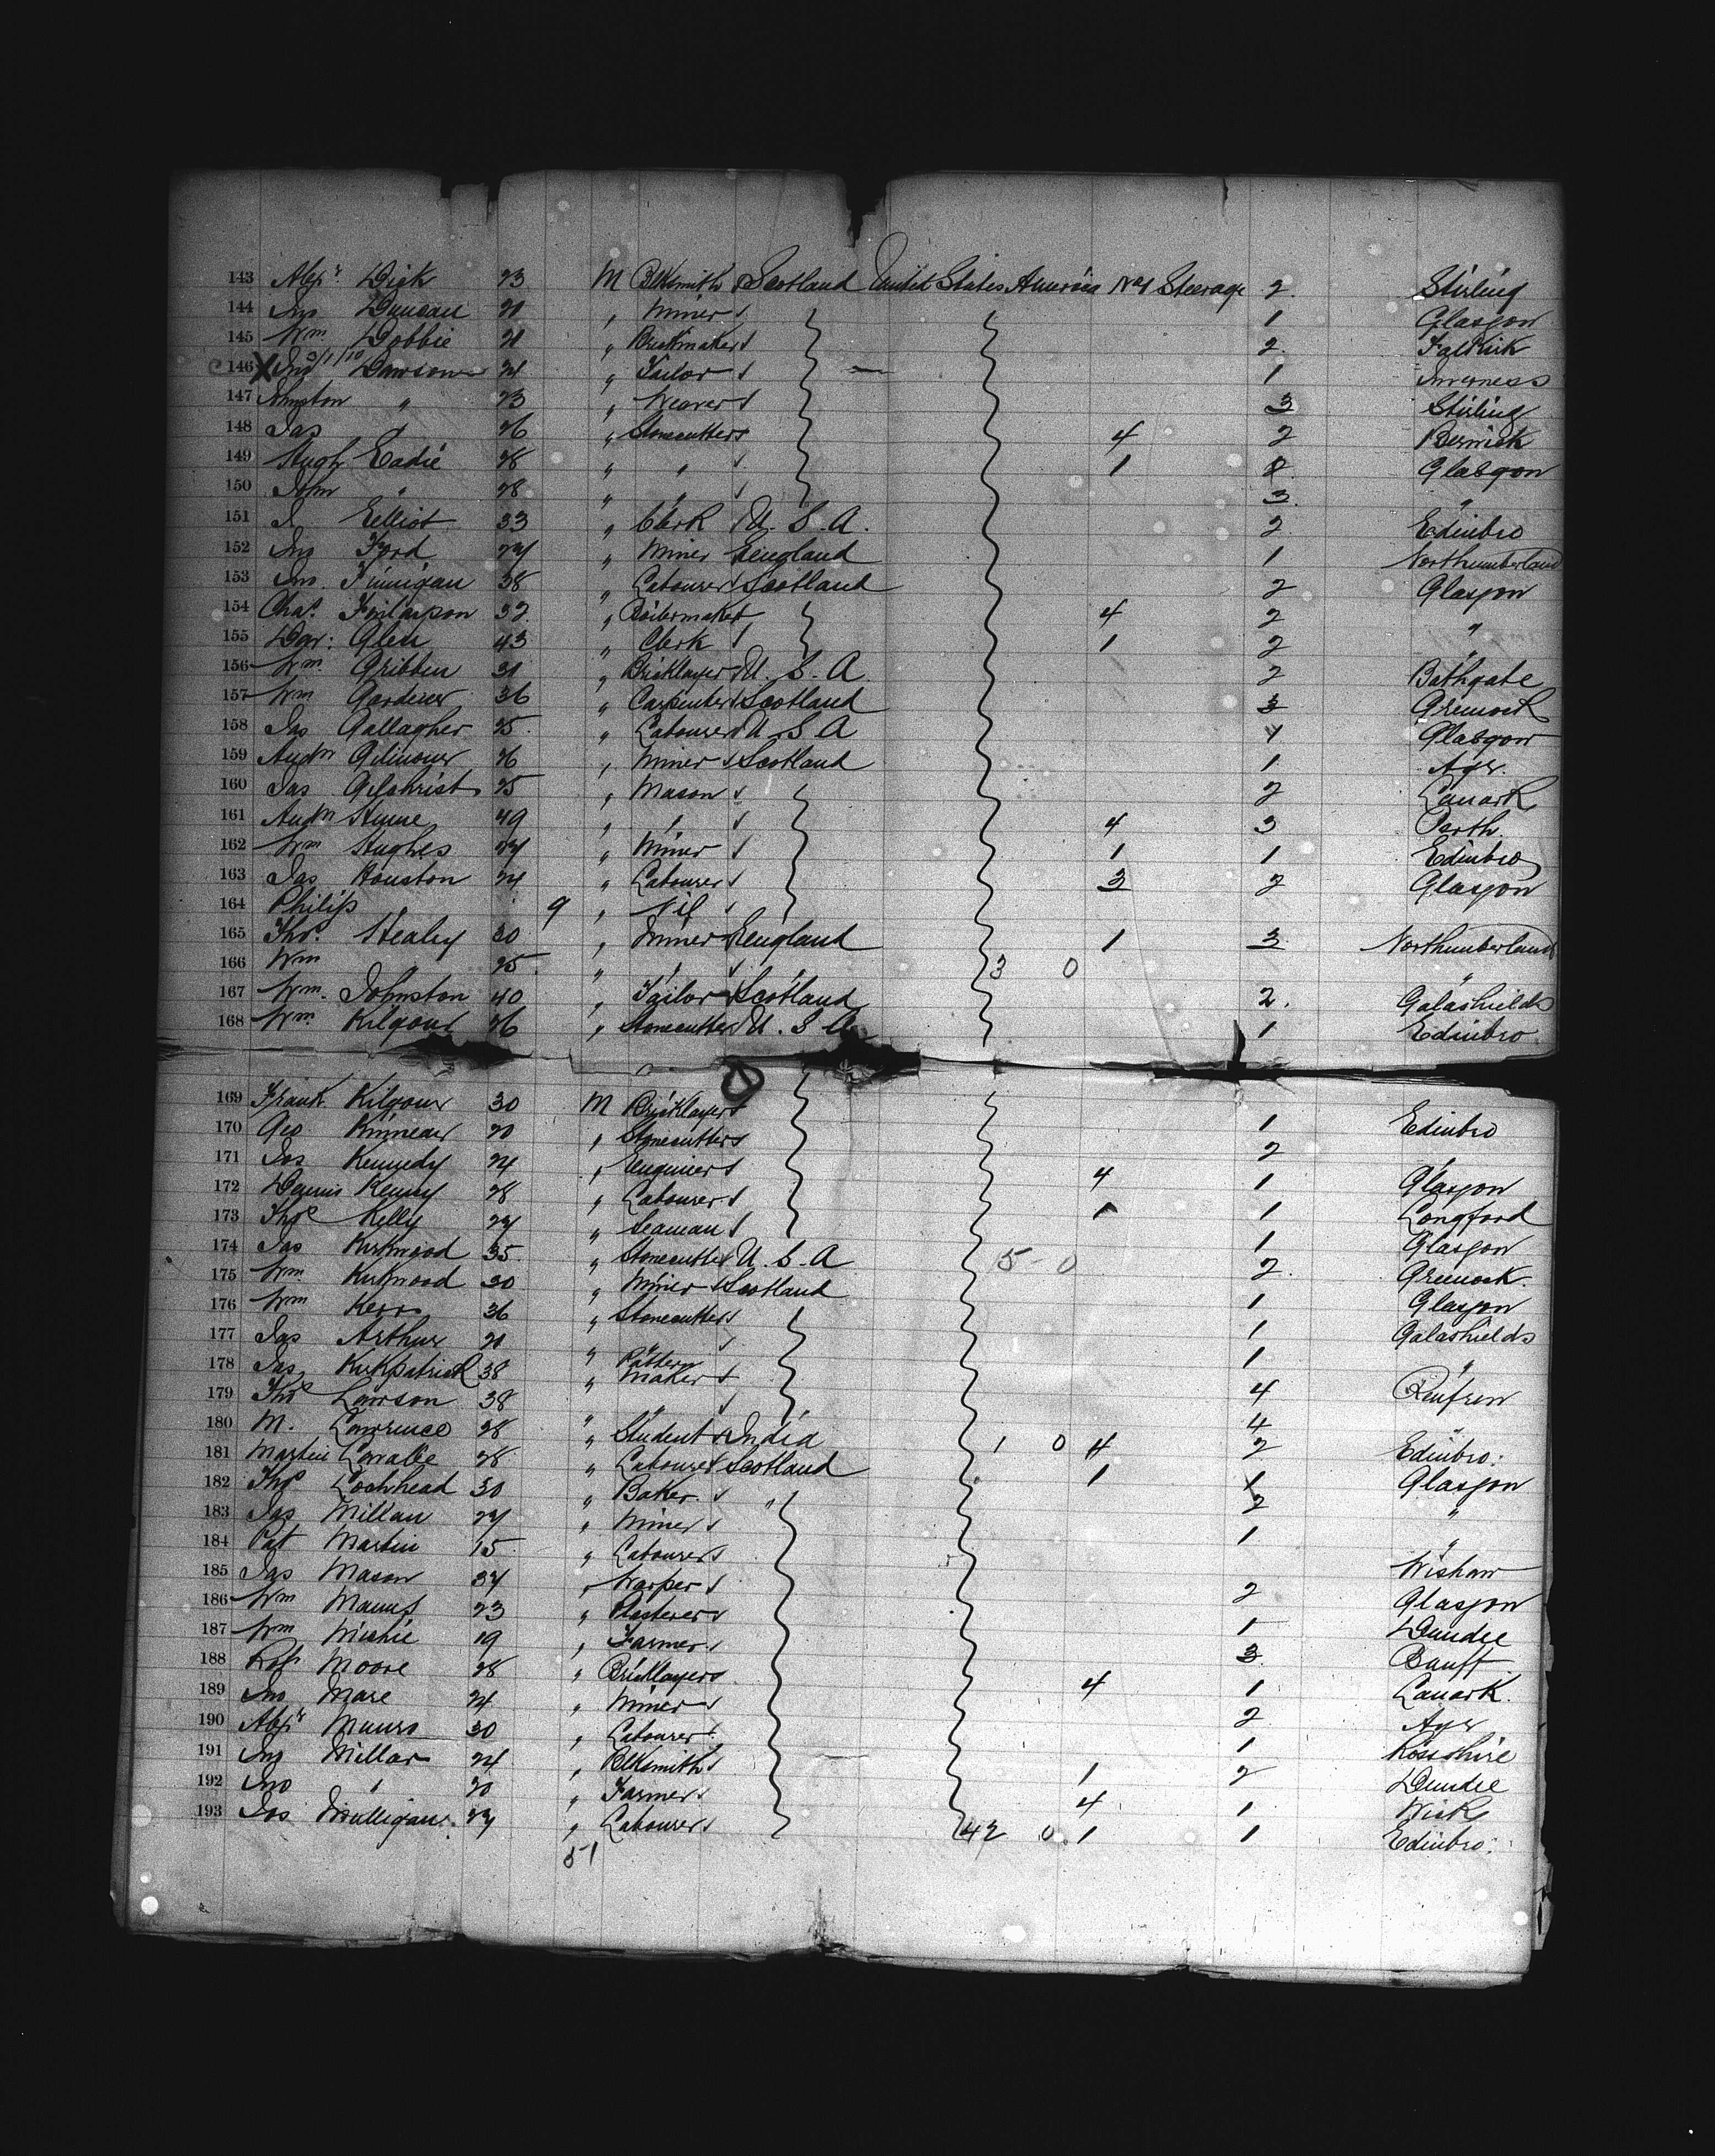 143 Alexr. Dick 23 M Blksmith Scotland United States America No 1 Steerage 2 Stirling
144 Jno. Duncan 21 " Miner 1 Glasgow
145 Wm Dobbie 21 " Brickmaker 2 Falkirk
146 X Jno Dawson 21 " Tailor 1 Inverness
147 Johnston " 23 " Weaver 3 Stirling
148 Jas " 26 " Stonecutter 4 2 Berwick
149 Hugh Eadie 28 " " 1 Glasgow
150 John " 28 " " 3 "
151 J. Elliot 33 " Clerk U. S. A. 2 Edinbro
152 Jno Ford 24 " Miner England 1 Northumberland
153 Jno. Finnigan 38 " Labourer Scotland 2 Glasgow
154 Chas. Finlayson 32 " Boilermaker 4 2 "
155 Glen 43 " Clerk 1 2 "
156 Wm. Gribben 31 " Bricklayer U. S. A 2 Bathgate
157 Wm Gardiner 36 " Carpenter Scotland 3 Greenock
158 Jas Gallagher 25 " Labourer U S A Glasgow
159 Andw Gilmour 26 " Miner Scotland 1 Ayr.
160 Jas Gilchrist 25 " Mason 2 Lanark
161 Andw Hume 49 " " 4 3 Perth
162 Wm Hughes 24 " Miner 1 1 Edinbro
163 Jas Houston 24 " Labourer 3 2 Glasgow
164 Philip 9 " Nil
165 Thos. Healey 30 " Miner England 1 3 Northumberland
166 Wm 25 " " 3 0 "
167 Wm. Johnston 40 " Tailor Scotland 2. Galashields
168 Wm. Kilgour 26 " Stonecutter U. S A 1 Edinbro
169 Frank Kilgour 30 M Bricklayer
170 Geo Kinnear 20 " Stonecutter 1 Edinbro
171 Jas Kennedy 24 " Engineer 2 "
172 Dennis Kenny 28 " Labourer 4 1 Glasgow
173 Thos Kelly 24 " Seaman 1 1 Longford
174 Jas Kirkwood 35 " Stonecutter U. S. A 5 - 0 1 Glasgow
175 Wm Kirkwood 30 " Miner Scotland 2. Greenock
176 Wm Kerr 36 " Stonecutter 1 Glasgow
177 Jas Arthur 21 " " 1 Galashields
178 Jas Kirkpatrick 38 " Pattern Maker 1 "
179 Thos Lawson 38 " " 4 Renfrew
180 M. Lawrence 28 " Student India 1 0 4 4
181 Martin Lavalle 28 " Labourer Scotland 1 2 Edinbro:
182 Thos Lochhead 30 " Baker " 1 Glasgow
183 Jas Millan 24 " Miner 2 "
184 Pat Martin 15 " Labourer 1 "
185 Jas Mason 34 " Warper Wishaw
186 Wm 23 " Plasterer 2 Glasgow
187 Wm Michie 19 " Farmer 1 Dundee
188 Robt Moore 28 " Bricklayer 3 Banff
189 Jno Mare 24 " Miner 4 1 Lanark
190 Alexr Munro 30 " Labourer 2 Ayr
191 Jno Millar 24 " Blksmith 1 Rossshire
192 Jno " 20 " Farmer 1 2 Dundee
193 Jas Mulligan 24 " Labourer 4 1 Wick
51 42 0 1 1 Edinbro: